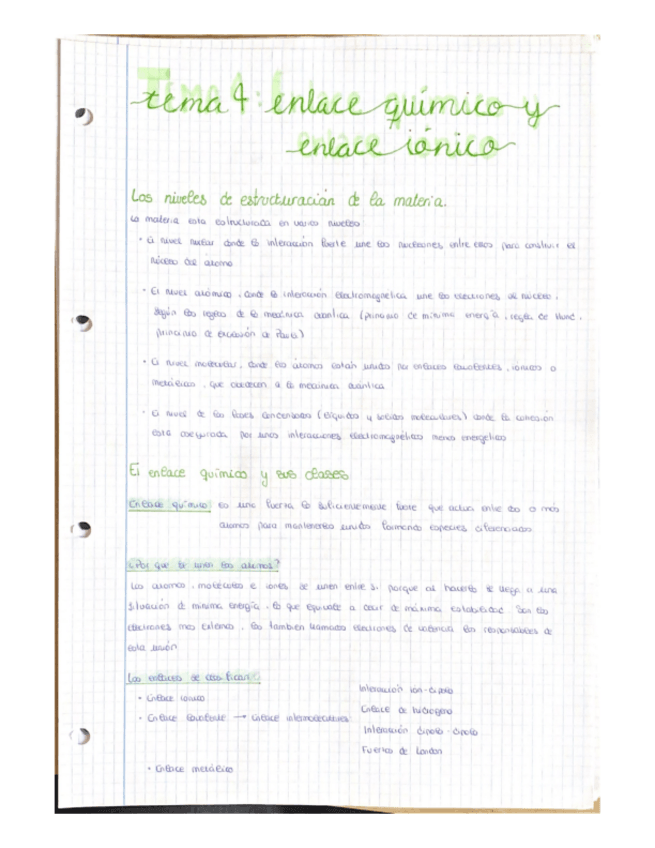 tema 4: enlace químico y
enlace iónico
Los niveles de estructuración de la materia.
La materia esta estructurada en varios niveles
• El nivel nuclear donde la interacción fuerte une los nucleones, entre ellos para construir el
núcleo del átomo
• El nivel atómico, donde la interacción electromagnetica une los electrones al núcleo,
según las reglas de la mecánica cuántica (principio de mínima energía, regla de Hund,
principio de exclusión de Pauli)
• El nivel molecular, donde los átomos están unidos por enlaces covalentes, ionicos o
metálicos, que obedecen a la mecánica cuántica
• El nivel de las fases condensadas (líquidos y sólidos moleculares) donde la cohesión
esta asegurada por unas interacciones electromagnéticas menos energéticas
El enlace químico y sus clases
Enlace químico: es una fuerza lo suficientemente fuerte que actua entre dos o más
atomos para mantenerlos unidos formando especies diferenciadas
¿Por que se unen los atomos?
Los atomos, moléculas e iones se unen entre si porque al hacerlo se llega a una
situación de mínima energía, lo que equivale a decir de máxima estabilidad. Son los
electrones mas externos, los tambien llamados electrones de valencia los responsables de
esta unión
Los enlaces se clasifican:
• Enlace ionico
• Enlace covalente → Enlace intermoleculares
Interacción ion-dipolo
Enlace de hidrógeno
Interacción dipolo-dipolo
Fuerzas de London
• Enlace metálico